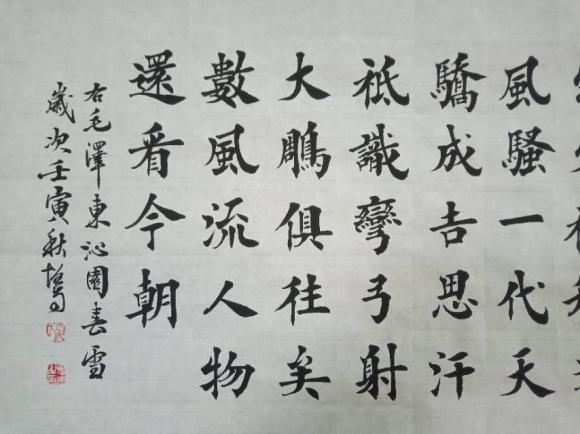 風騷一代天
驕成吉思汗
祗識彎弓射
大鵰俱往矣
數風流人物
還看今朝
右毛澤東沁園春雪
歲次壬寅秋